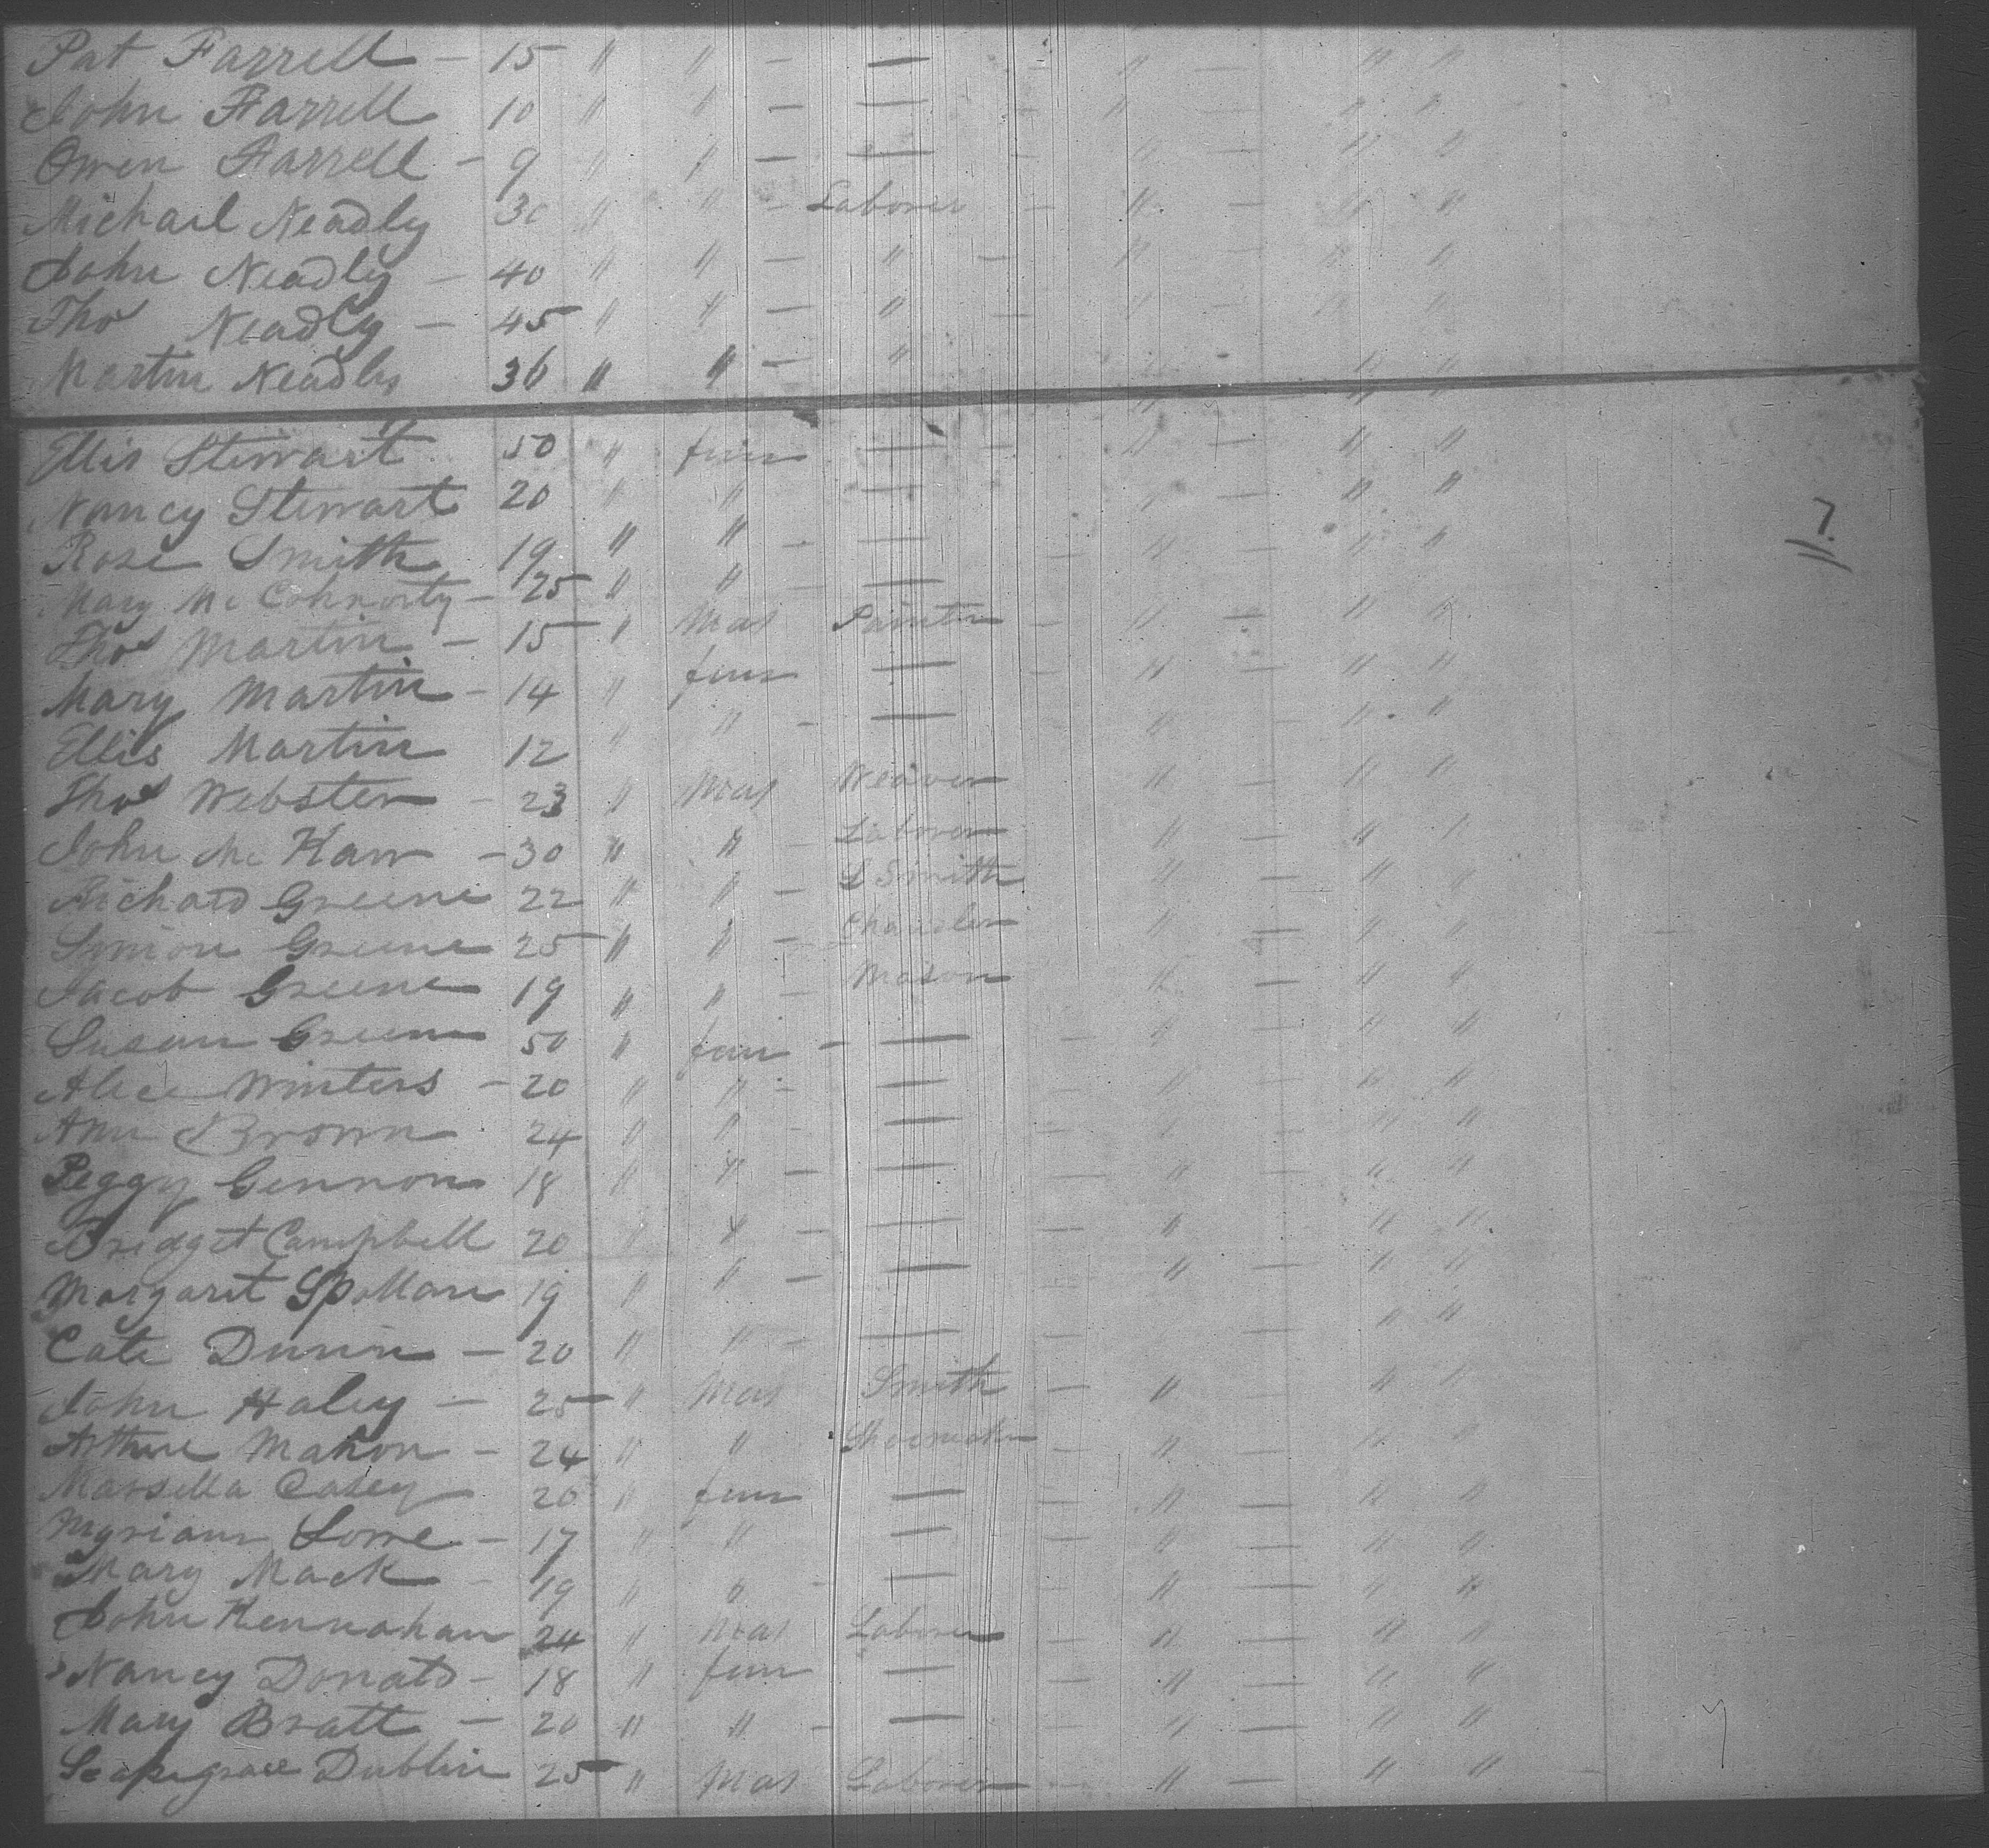 Pat Farrell — 15 " " — — — " — " "
John Farrell 10 " " — — — " — " "
Owen Farrell — 9 " " — — — " — " "
Michael Neadly 30 " " — Laborer — " — " "
John Neadly — 40 " " — " — " — " "
Thos Neadly — 45 " " — " — " — " "
Martin Neadly 36 " " — " " " "
Ellis Stewart 50 " fem — — " — " "
Nancy Stewart 20 " " — " — " "
Rose Smith 19 " " — — — " — " "
Mary Mc — 25 " " — —
Thos Martin — 15 " Mas Painter — " — " "
Mary Martin — 14 " fem — — " — " "
Ellis Martin 12 " " — — " — " "
Thos Webster — 23 " Mas Weaver " — " "
John Mc Kaw — 30 " " Laborer " — " "
Richard Greene 22 " " — Smith " — " "
Simion Greene 25 " " — Chandler " — " "
Jacob Greene 19 " " — Mason " — " "
Susan Green 50 " fem — — — " " "
Alice Winters — 20 " " — — " — " "
Ann Brown 24 " " — — — " — " "
Peggy Gennon 18 " " — — — " — " "
Bridget Campbell 20 " " — — — " " "
Margaret Spollan 19 " " — — " — " "
Cate Dunin — 20 " " — — — — " "
John Haley — 25 " Mas Smith — " — " "
Arthur Mahon — 24 " " Shoemaker — " — " "
Massella Casey 20 " fem — — " — " "
Myriam Lowe — 17 " " — — " — " "
Mary Mack — 19 " " — — — " — " "
John Kennahan 24 " Mas Laborer — " — " "
Nancy Donato — 18 " fem — — " — " "
Mary Bratt — 20 " " — — — " — " "
Scapegrace Dublin 25 " Mas Laborer — " — " "
7.